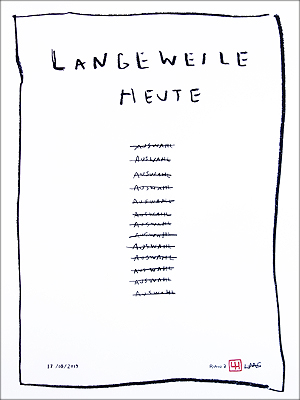 LANGEWEILE
HEUTE
AUSWAHL
AUSWAHL
AUSWAHL
AUSWAHL
AUSWAHL
AUSWAHL
AUSWAHL
AUSWAHL
AUSWAHL
AUSWAHL
AUSWAHL
AUSWAHL
AUSWAHL
17/08/2019